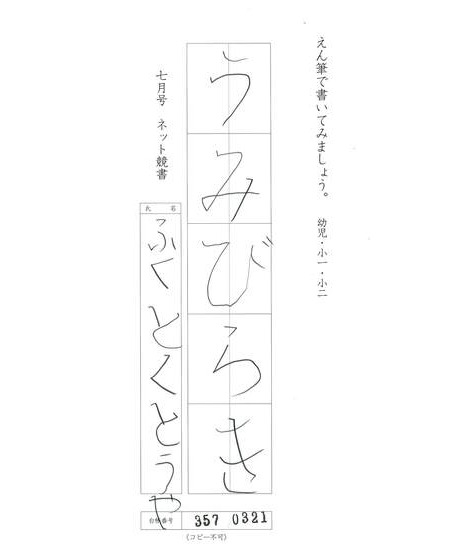 えん筆で書いてみましょう。 幼児・小一・小二
うみびらき
七月号 ネット競書
氏名
ふくとくとうや
台帳番号 357 0321
(コピー不可)